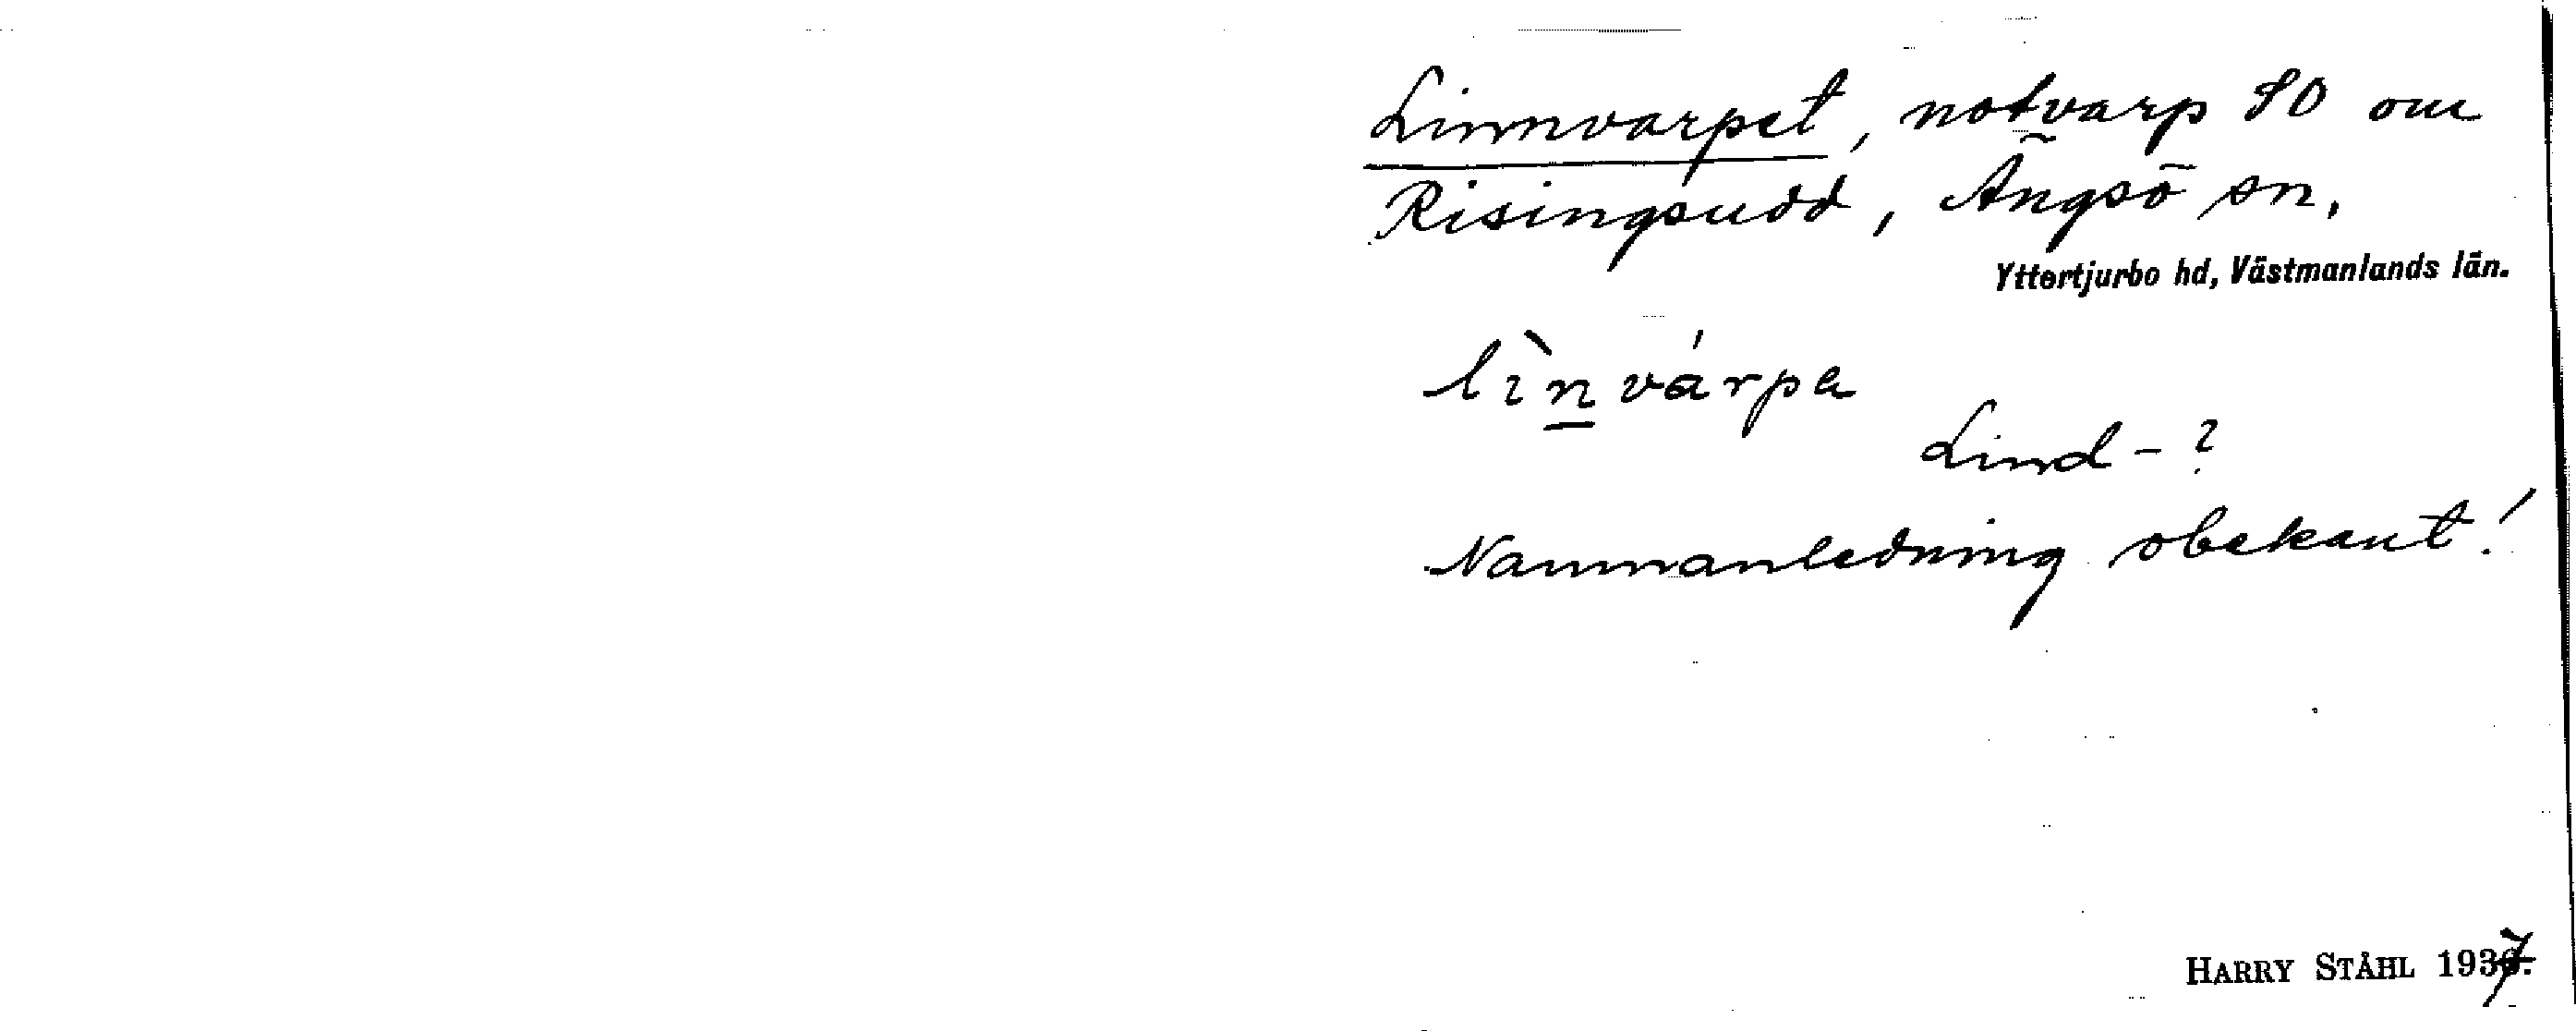 Linnvarpet, notvarp SO om
Risingsudd, Ängsö sn,
Yttertjurbo hd, Västmanlands län.
lìnvárpa
Lind-?
Namnanledning obekant!
HARRY STÅHL 1937.